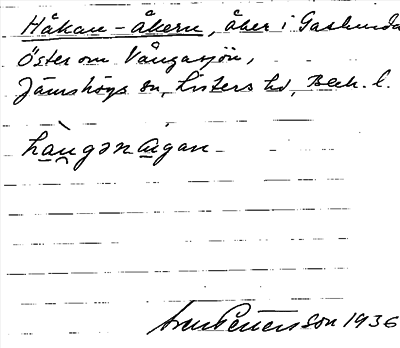 Håkan-åkern, åker i Gaslunda
öster om Vångasjön,
Jämshögs sn, Listers hd, Blek. l.
Pettersson 1936